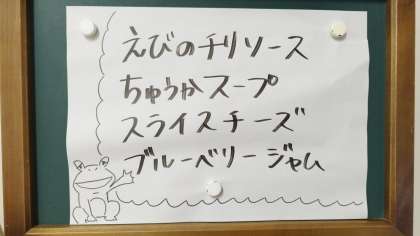 えびのチリソース
ちゅうかスープ
スライスチーズ
ブルーベリージャム